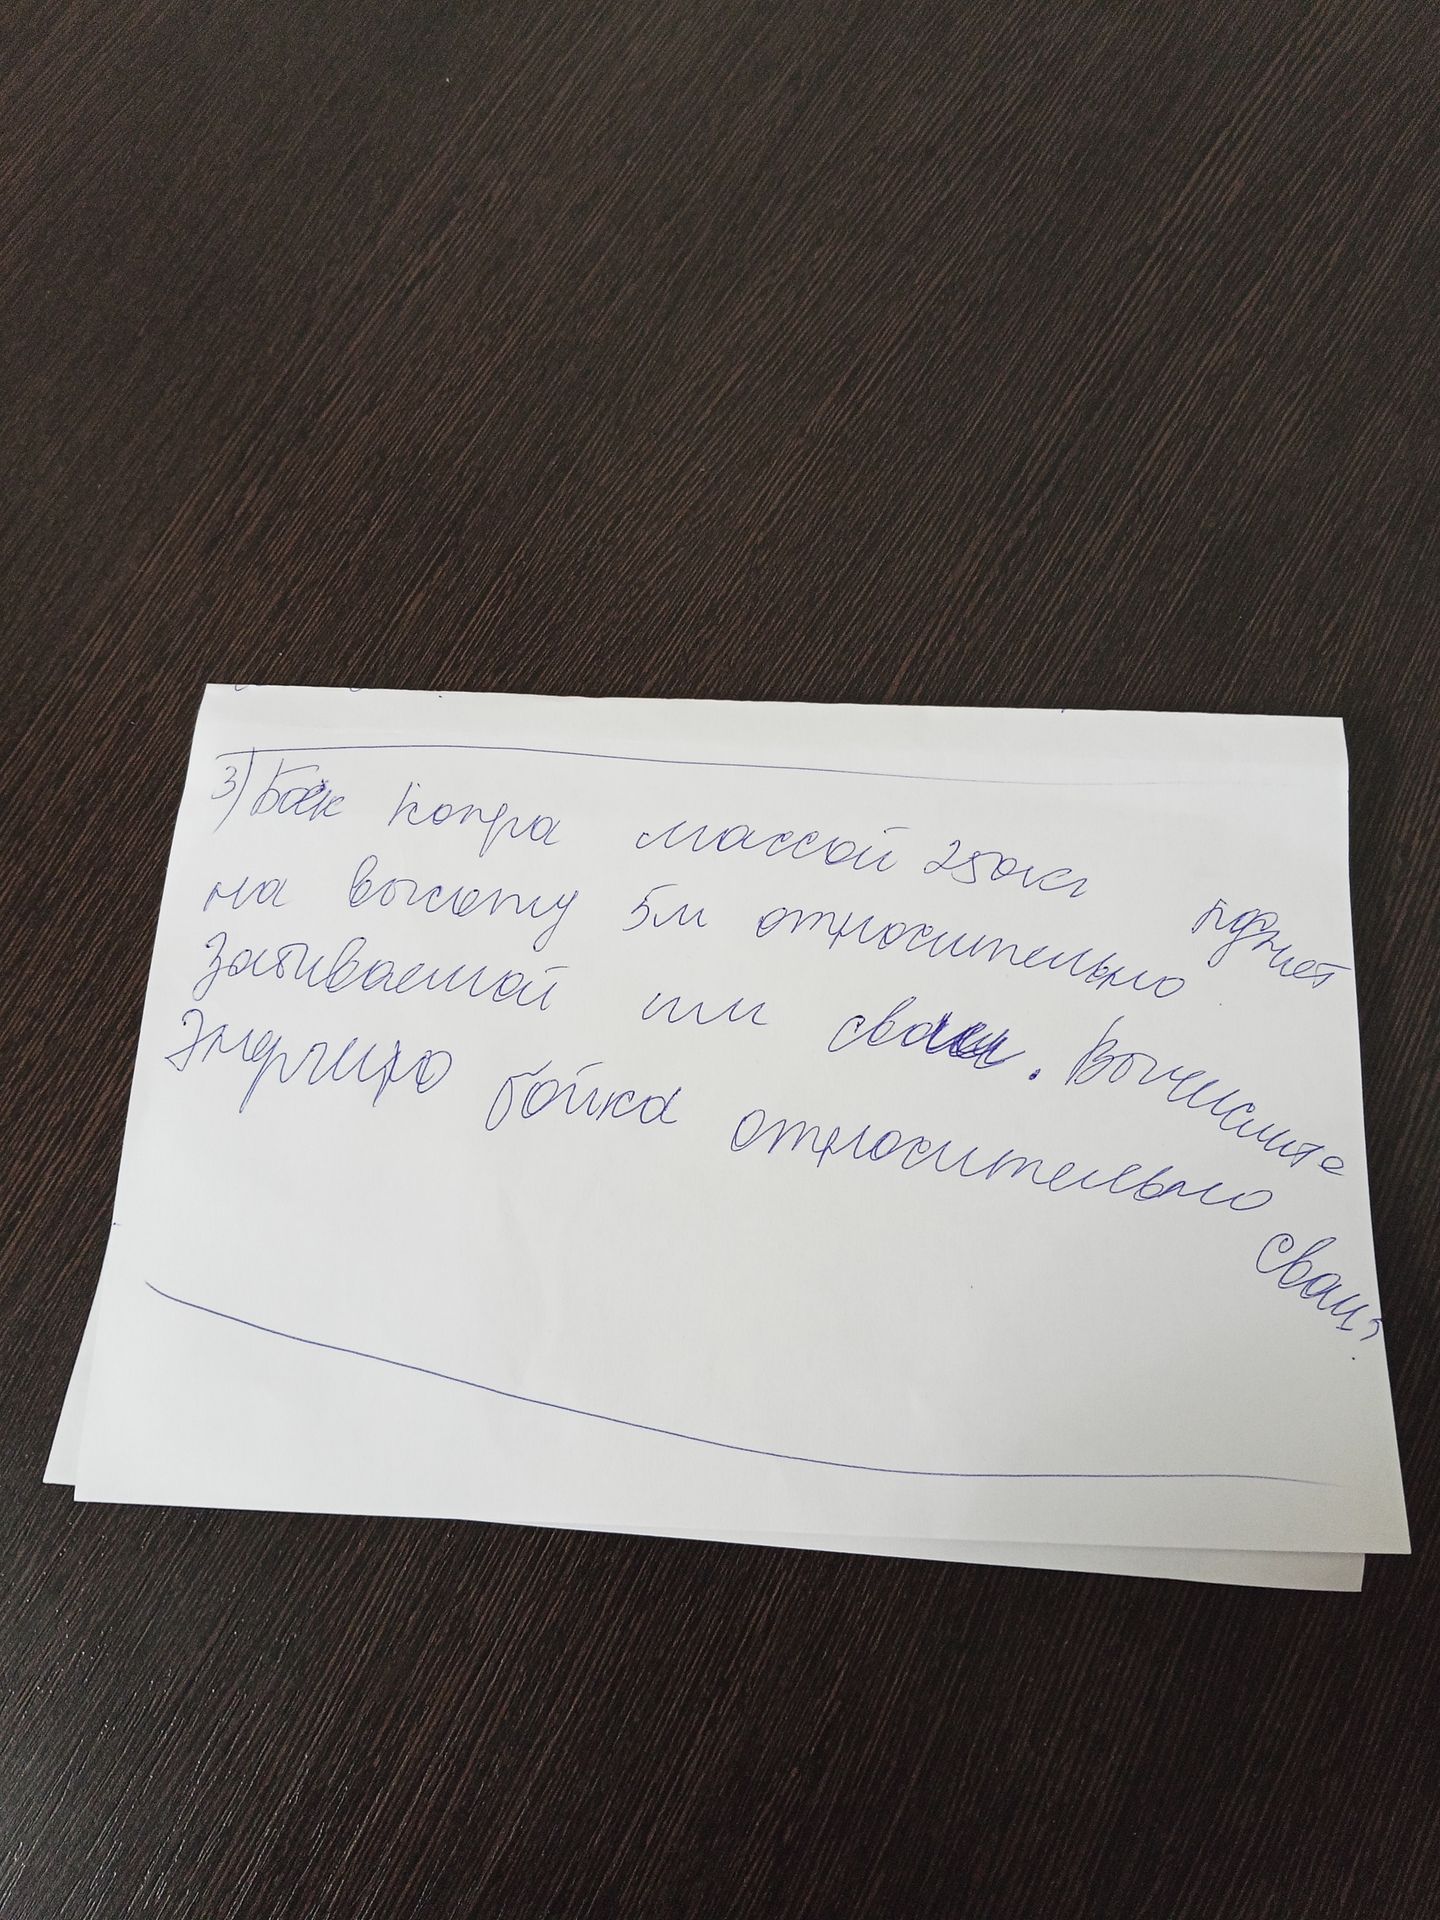 3) Боек копра массой 250кг поднят
на высоту 5м относительно
забиваемой им сваи. Вычислите
энергию бойка относительно сваи?